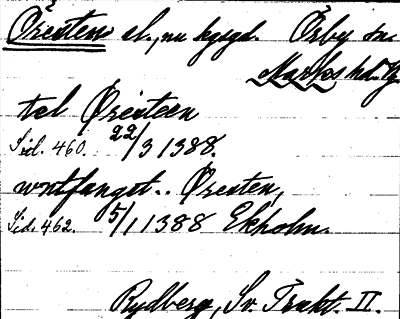 Öresten sl., nu kgsgd. Örby sn.
Marks hd. Vg
tel Øresteen
Sid. 460. 22/3 1388.
wntfanget.. Øresten,
Sid. 462. 5/1 1388 Ekholm.
Rydberg, Sv. Trakt. II.